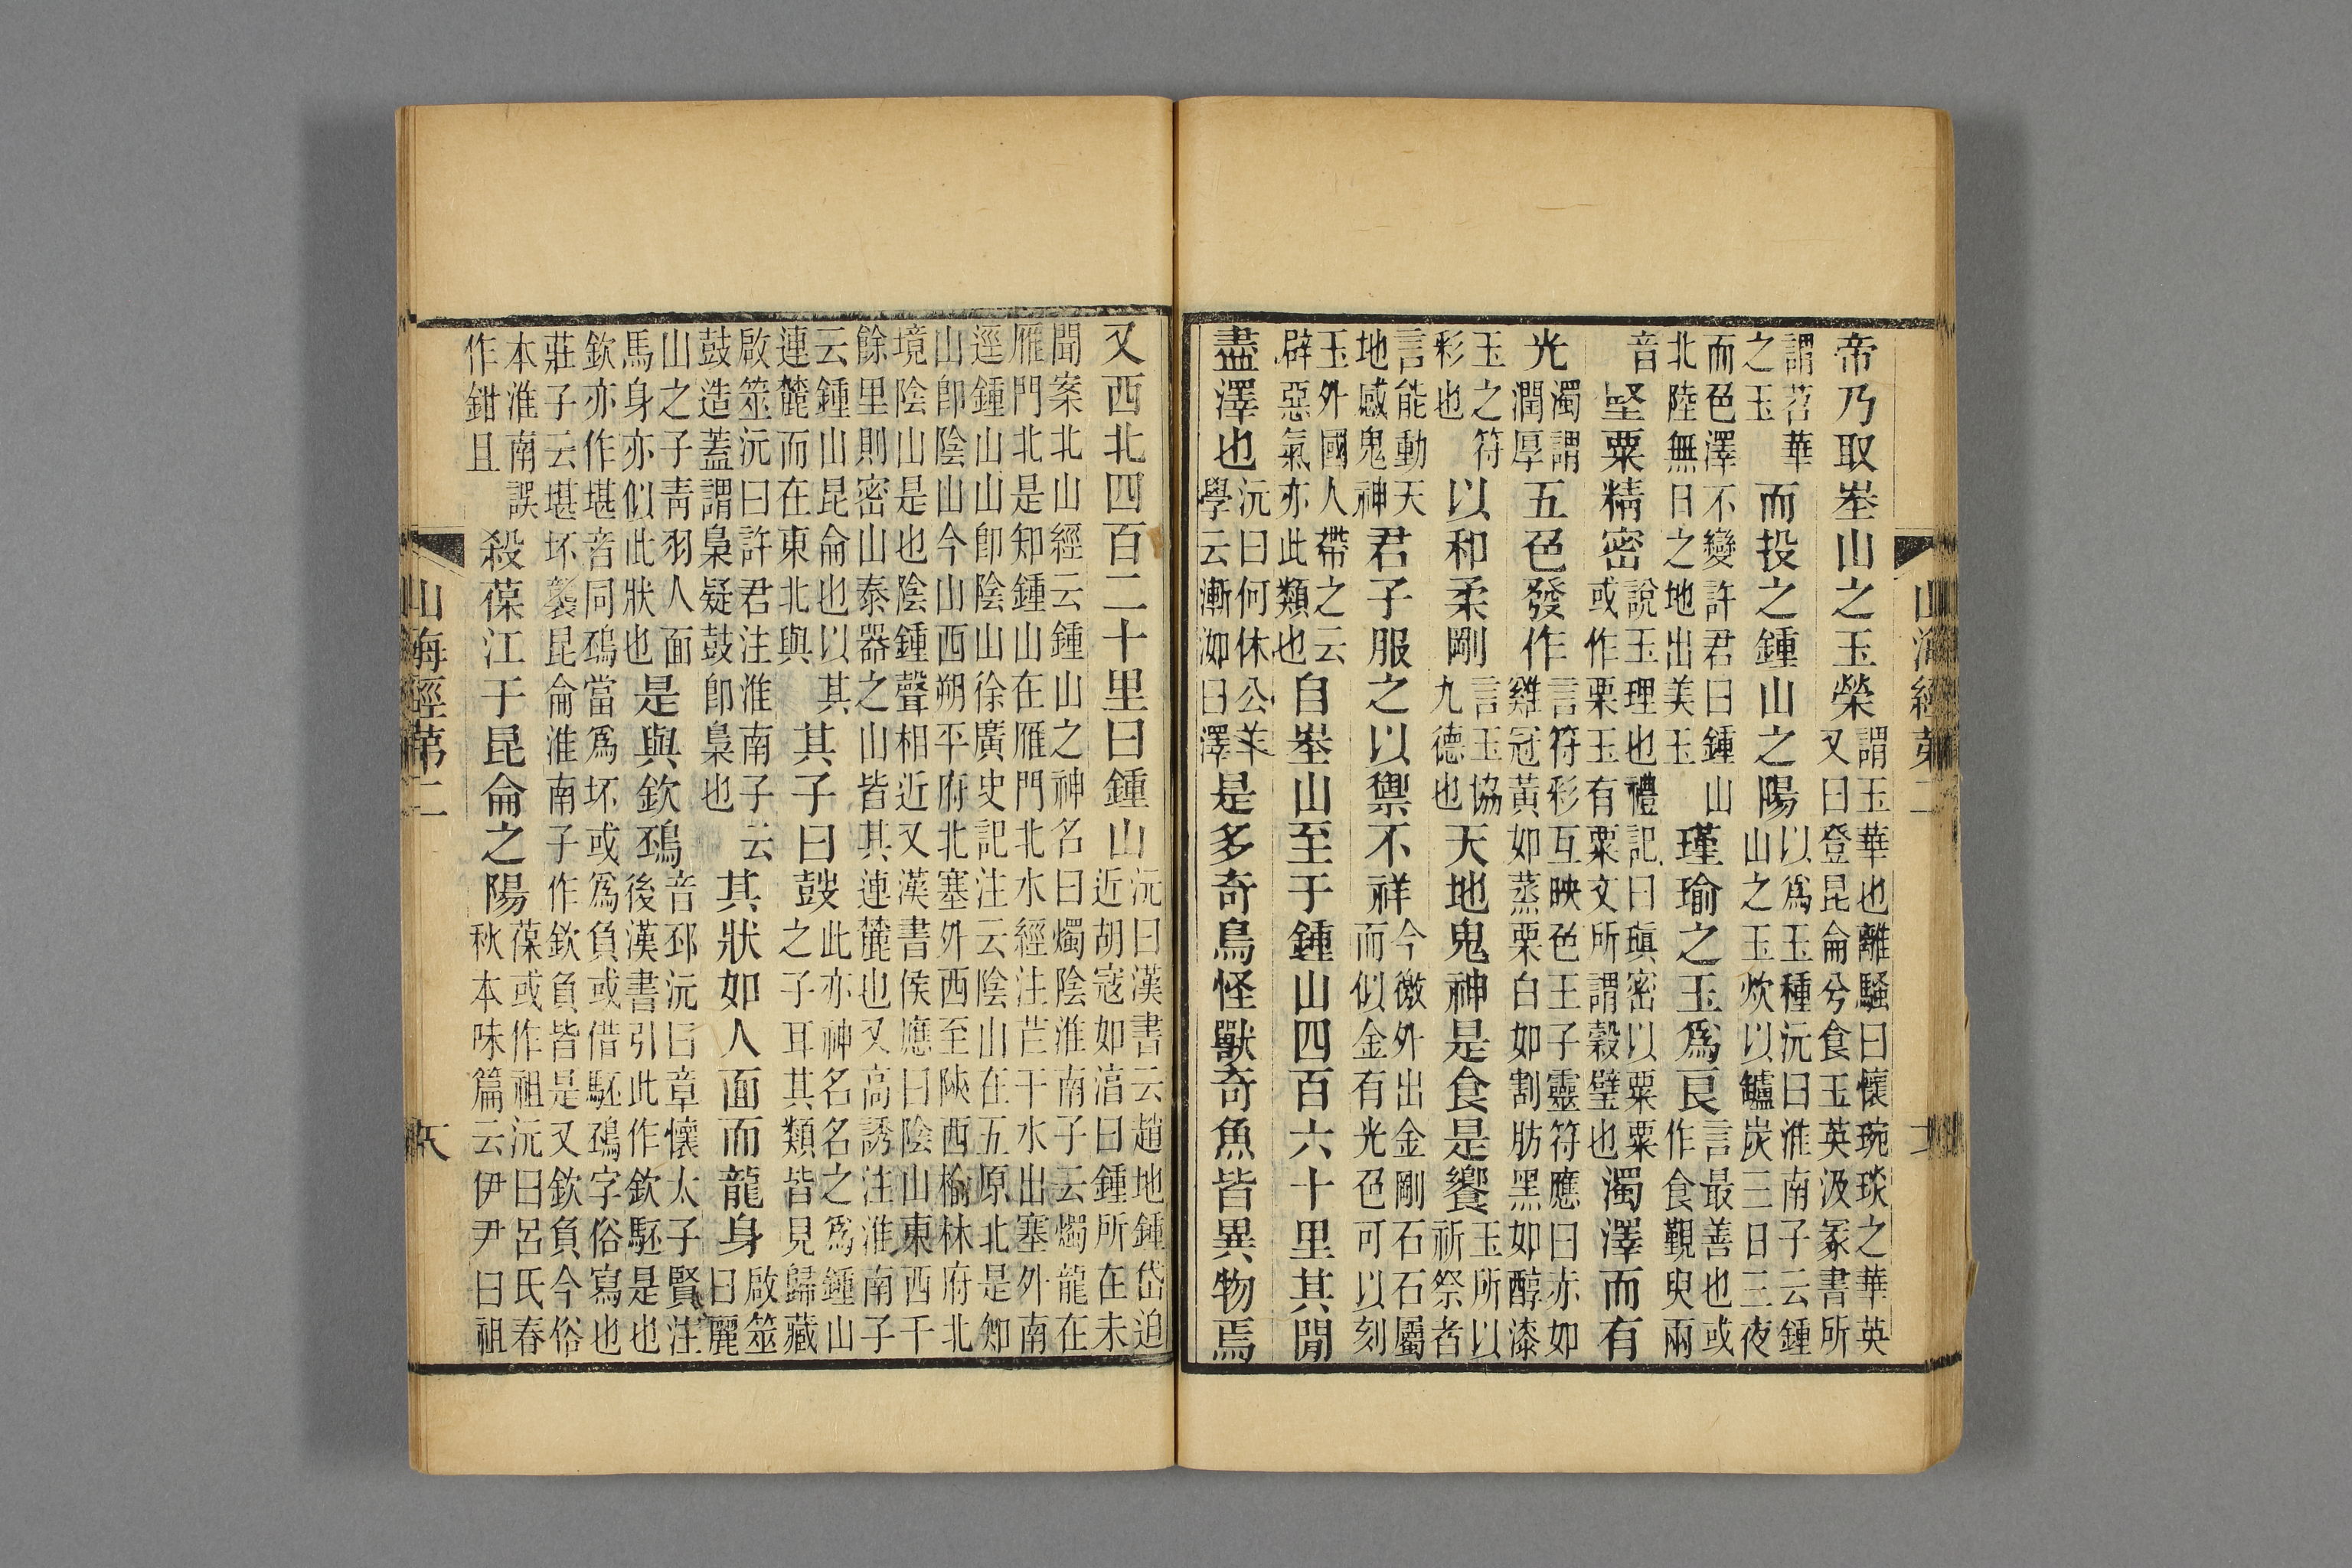 山海經第二
帝乃取峚山之玉榮謂玉華也離騷曰懷琬琰之華英又曰登昆侖兮食玉英汲冢書所
謂苕華之玉而投之鍾山之陽以爲玉種沅曰淮南子云鍾山之玉炊以鑪炭三日三夜
而色澤不變許君曰鍾山北陸無日之地出美玉瑾瑜之玉爲良言最善也或作食覲臾兩
音堅粟精密說玉理也禮記曰瑱密以栗粟或作栗玉有粟文所謂穀璧也濁澤而有
光濁謂潤厚五色發作言符彩互映色王子靈符應曰赤如雞冠黃如蒸栗白如割肪黑如醇漆
玉之符彩也以和柔剛言玉協九德也天地鬼神是食是饗玉所以祈祭者
言能動天地感鬼神君子服之以禦不祥今徼外出金剛石石屬而似金有光色可以刻
玉外國人帶之云辟惡氣亦此類也自峚山至于鍾山四百六十里其閒
盡澤也沅曰何休公羊學云漸洳曰澤是多奇鳥怪獸奇魚皆異物焉
又西北四百二十里曰鍾山沅曰漢書云趙地鍾岱迫近胡寇如淳曰鍾所在未
聞案北山經云鍾山之神名曰燭陰淮南子云燭龍在雁門北是知鍾山在雁門北水經注芒干水出塞外南
逕鍾山山卽陰山徐廣史記注云陰山在五原北是知山卽陰山今山西朔平府北塞外西至陝西榆林府北
境陰山是也陰鍾聲相近又漢書侯應曰陰山東西千餘里則密山泰器之山皆其連麓也又高誘注淮南子
云鍾山昆侖也以其連麓而在東北與其子曰鼓此亦神名名之爲鍾山之子耳其類皆見歸藏
啟筮沅曰許君注淮南子云鼓造蓋謂梟疑鼓卽梟也其狀如人面而龍身啟筮曰麗
山之子靑羽人面馬身亦似此狀也是與欽䲹音邳沅曰章懷太子賢注後漢書引此作欽駓是也
欽亦作堪音同䲹當爲坏或爲負或借駓䲹字俗寫也莊子云堪坏襲昆侖淮南子作欽負皆是又欽負今俗
本淮南誤作鉗且殺葆江于昆侖之陽葆或作祖沅曰呂氏春秋本味篇云伊尹曰祖
山海經第二